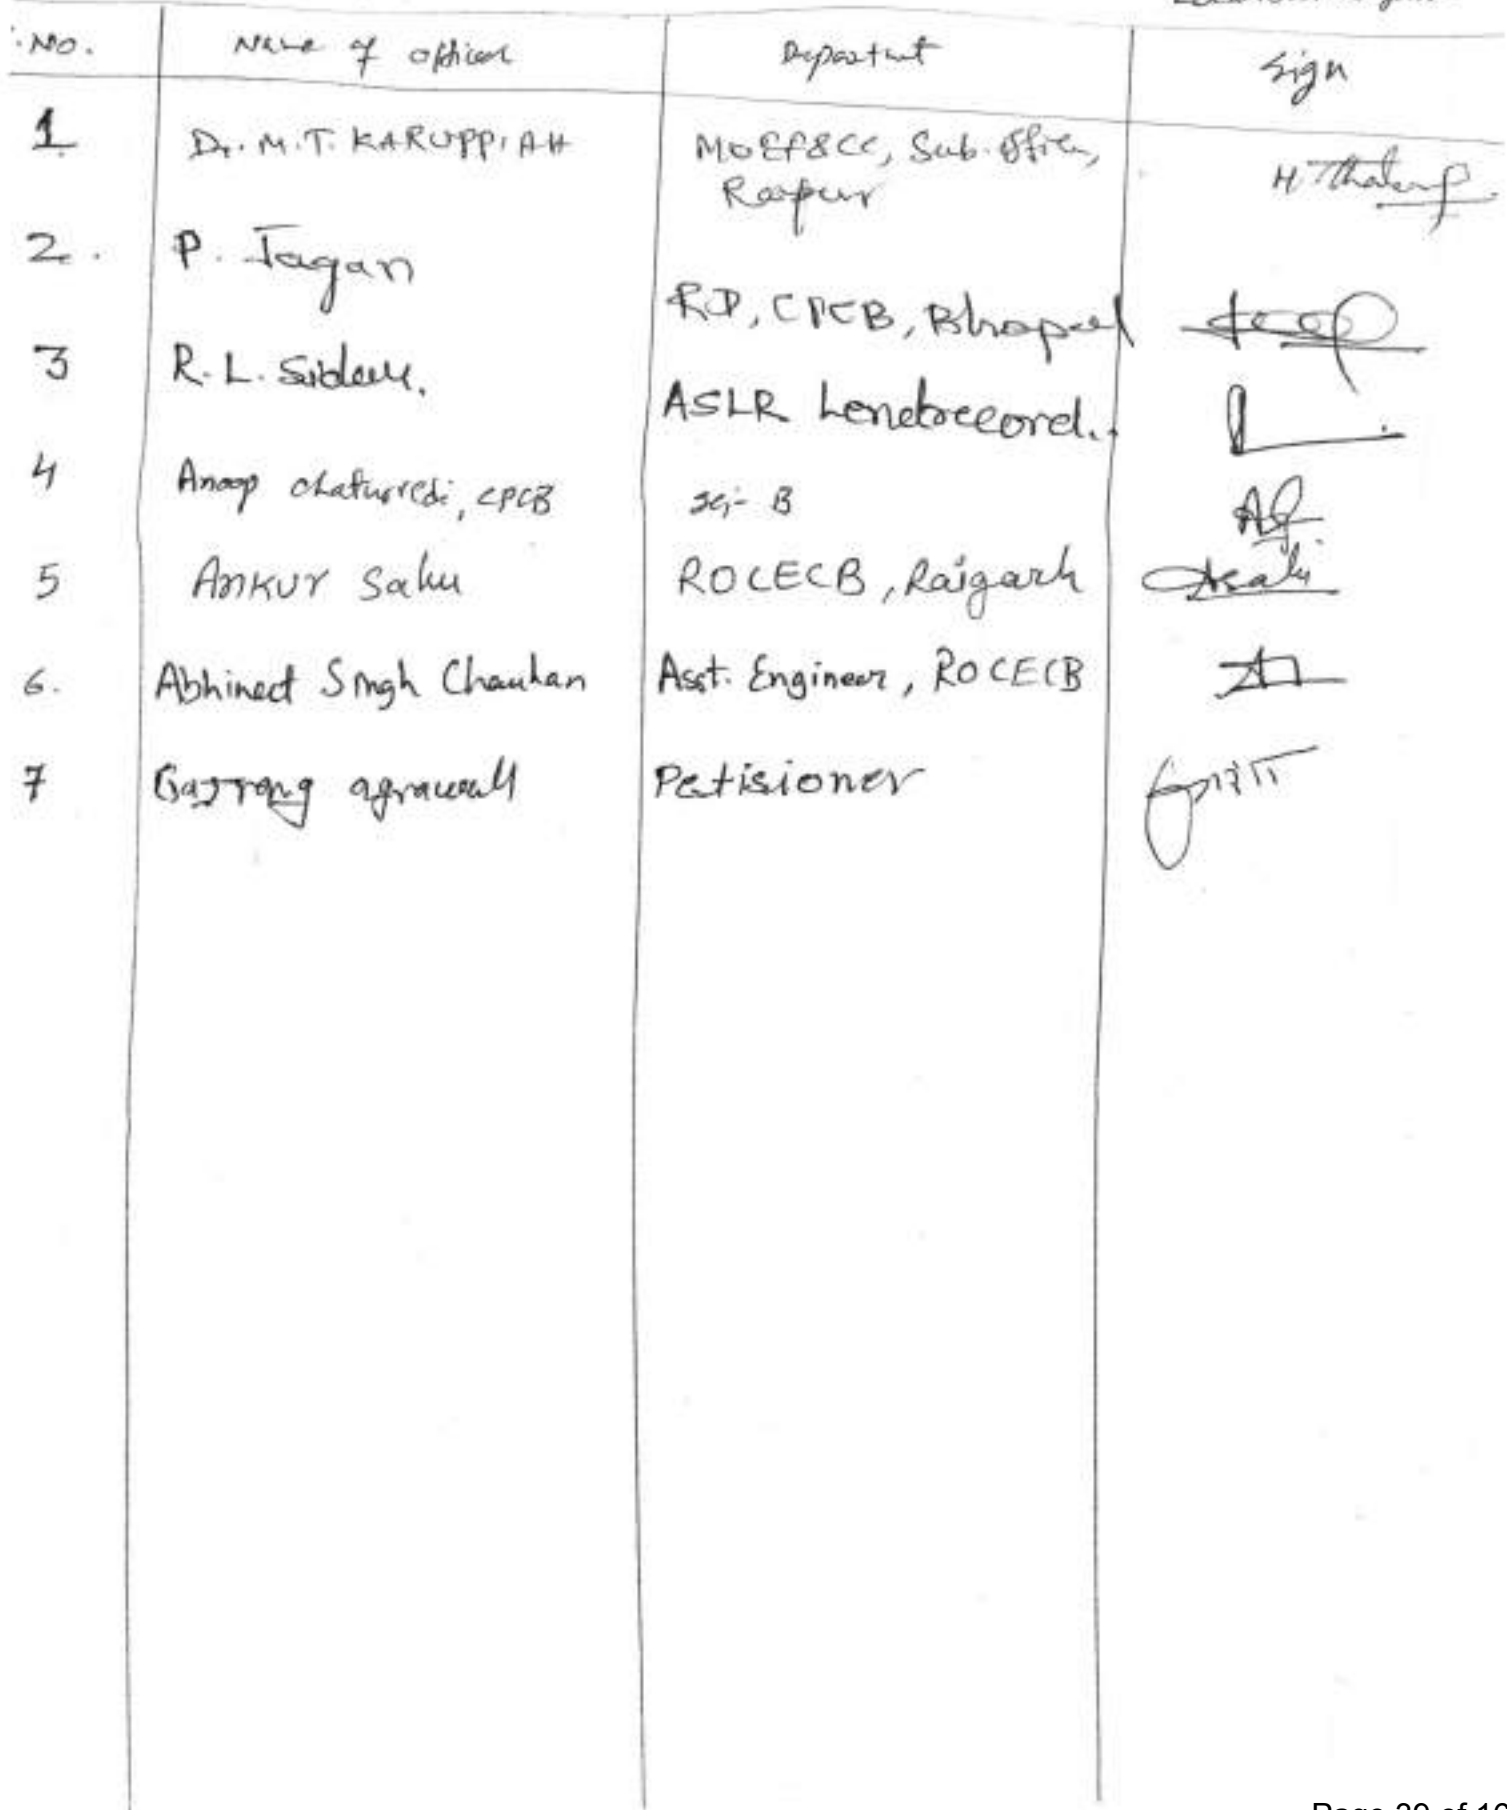 No. Name of official Department Sign
1 Dr. M.T. KARUPPIAH MOEF&CC, Sub-office,
Raipur
2. P. Jagan RD, CPCB, Bhopal
3 R.L. ASLR Landrecord.
4 Anoop chaturvedi, CPCB Sci- B
5 Ankur Sahu ROCECB, Raigarh
6. Abhineet Singh Chauhan Asst. Engineer, ROCECB
7 Bajrang agrawall Petisioner